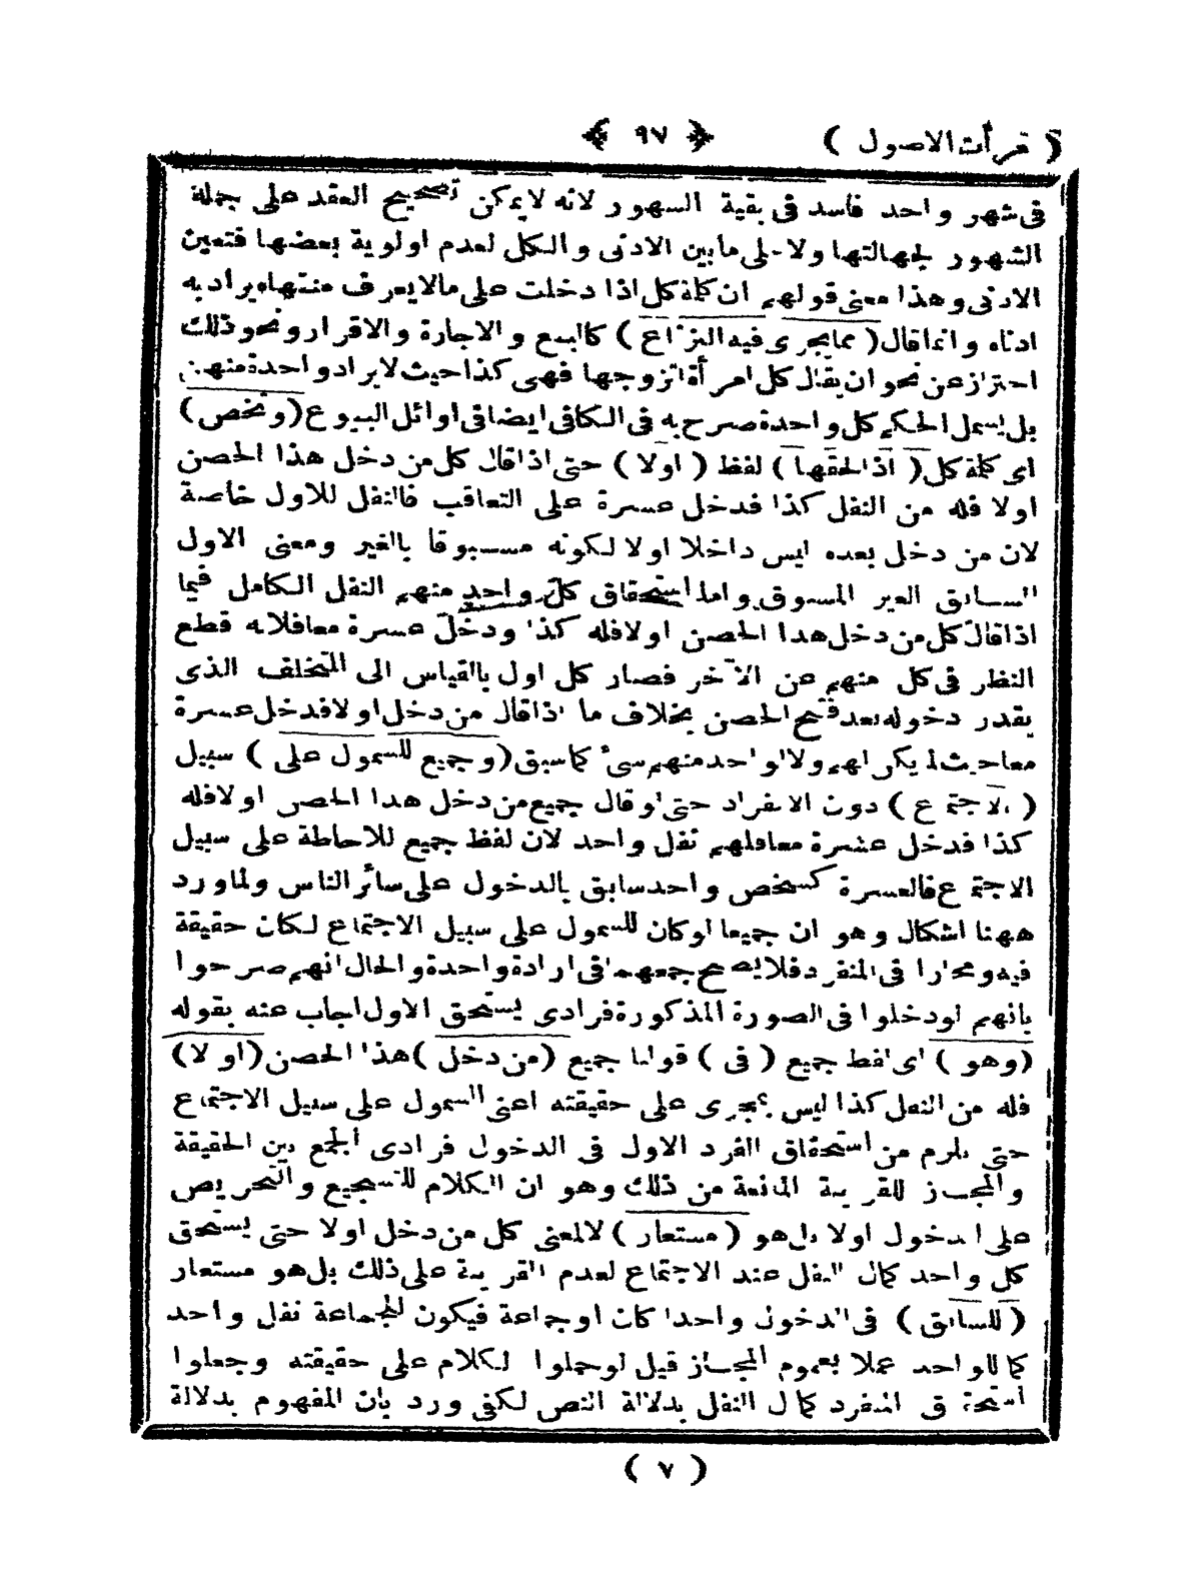 ( مرأت الاصول )
﴿ ٩٧ ﴾
فى شهر واحد فاسد فى بقية الشهور لانه لا يمكن تصحيح العقد على جملة
الشهور لجهالتها ولا على ما بين الادنى والكل لعدم اولوية بعضها فتعين
الادنى وهذا معنى قولهم ان كلمة كل اذا دخلت على ما لا يعرف منتهاه يراد به
ادناه وانما قال ( مما يجرى فيه النزاع ) كالبيع والاجارة والاقرار ونحو ذلك
احتراز عن نحو ان يقال كل امرأة اتزوجها فهى كذا حيث لا يراد واحدة منهن
بل يشمل الحكم كل واحدة صرح به فى الكافى ايضا فى اوائل البيوع ( وتخص )
اى كلمة كل ( اذا لحقها ) لفظ ( اولا ) حتى اذا قال كل من دخل هذا الحصن
اولا فله من النفل كذا فدخل عشرة على التعاقب فالنفل للاول خاصة
لان من دخل بعده ليس داخلا اولا لكونه مسبوقا بالغير ومعنى الاول
السابق الغير المسبوق واما استحقاق كل واحد منهم النفل الكامل فيما
اذا قال كل من دخل هذا الحصن اولا فله كذا ودخل عشرة معا فلانه قطع
النظر فى كل منهم عن الآخر فصار كل اول بالقياس الى المتخلف الذى
يقدر دخوله بعد فتح الحصن بخلاف ما اذا قال من دخل اولا فدخل عشرة
معا حيث لم يكن لهم ولا لواحد منهم شئ كما سبق ( وجميع للشمول على ) سبيل
( الاجتماع ) دون الانفراد حتى لو قال جميع من دخل هذا الحصن اولا فله
كذا فدخل عشرة معا فلهم نفل واحد لان لفظ جميع للاحاطة على سبيل
الاجتماع فالعشرة كشخص واحد سابق بالدخول على سائر الناس ولما ورد
ههنا اشكال وهو ان جميعا لو كان للشمول على سبيل الاجتماع لكان حقيقة
فيه ومجازا فى المنفرد فلا يصح جمعهما فى ارادة واحدة والحال انهم صرحوا
بانهم لو دخلوا فى الصورة المذكورة فرادى يستحق الاول اجاب عنه بقوله
( وهو ) اى لفظ جميع ( فى ) قولنا جميع ( من دخل ) هذا الحصن ( اولا )
فله من النفل كذا ليس بمجرى على حقيقته اعنى الشمول على سبيل الاجتماع
حتى يلزم من استحقاق الفرد الاول فى الدخول فرادى الجمع بين الحقيقة
والمجاز للقرينة المانعة من ذلك وهو ان الكلام للتشجيع والتحريض
على الدخول اولا بل هو ( مستعار ) لا لمعنى كل من دخل اولا حتى يستحق
كل واحد كمال النفل عند الاجتماع لعدم القرينة على ذلك بل هو مستعار
( للسابق ) فى الدخول واحدا كان او جماعة فيكون للجماعة نفل واحد
كما للواحد عملا بعموم المجاز قيل لو حملوا الكلام على حقيقته وجعلوا
استحقاق المنفرد كمال النفل بدلالة النص لكفى ورد بان المفهوم بدلالة
( ٧ )